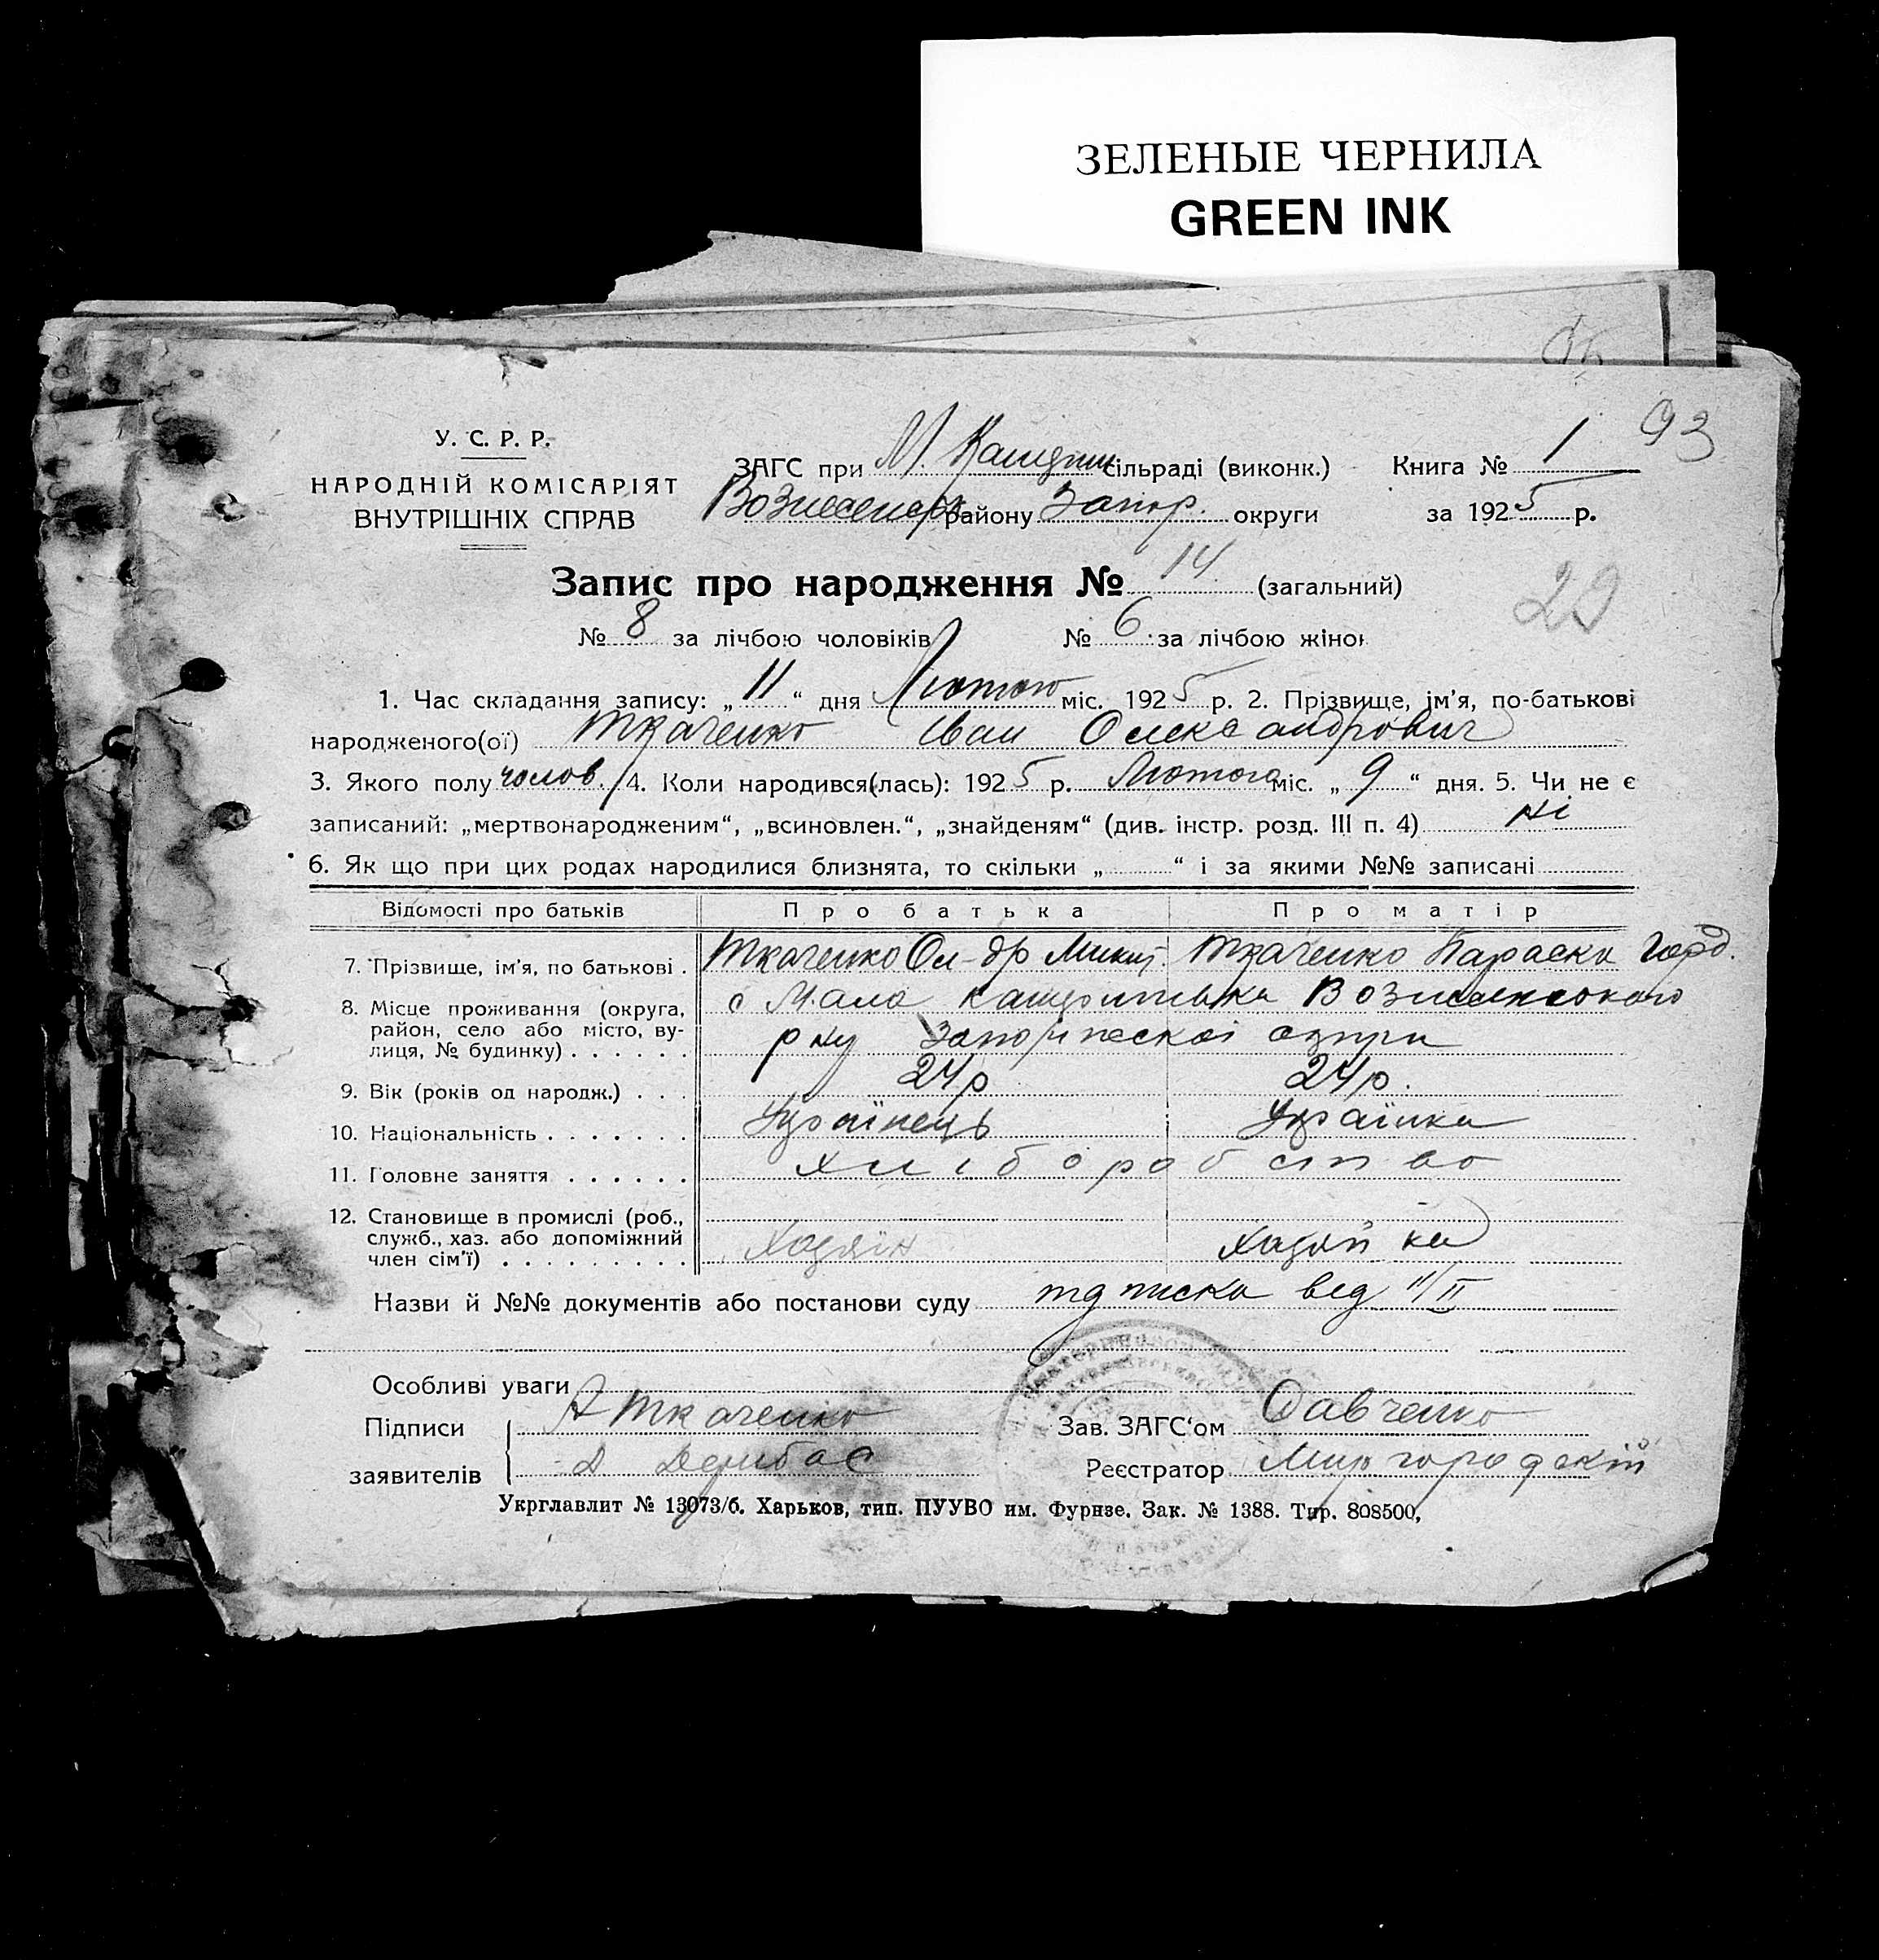 ЗЕЛЕНЫЕ ЧЕРНИЛА
GREEN INK
93
У. С. Р. Р.
НАРОДНІЙ КОМІСАРІЯТ
ВНУТРІШНІХ СПРАВ
ЗАГС при М. сільраді (виконк.) Книга № 1
району Запор. округи за 1925 р.
Запис про народження № 14 (загальний)
29
№ 8 за лічбою чоловіків № 6 за лічбою жінок
1. Час складання запису: „11“ дня Лютого міс. 1925 р. 2. Прізвище, ім'я, по-батькові
народженого(ої) Ткаченко Іван Олександрович
3. Якого полу чолов. 4. Коли народився(лась): 1925 р. Лютого міс. „9“ дня. 5. Чи не є
записаний: „мертвонародженим“, „всиновлен.“, „знайденям“ (див. інстр. розд. III п. 4) Ні
6. Як що при цих родах народилися близнята, то скільки „ “ і за якими №№ записані
Відомості про батьків Про батька Про матір
7. Прізвище, ім'я, по батькові . Ткаченко Ол-др Микит. Ткаченко Параска Горд.
8. Місце проживання (округа, район, село або місто, вулиця, № будинку) . . . . . . с Мало Вознесенського
р ну округи
9. Вік (років од народж.) . . . 24р 24р.
10. Національність . . . . . . . Українець Українка
11. Головне заняття . . . . . . Хліборобство
12. Становище в промислі (роб., служб., хаз. або допоміжний член сім'ї) . . . . . . . . . Хазяїн Хазяйка
Назви й №№ документів або постанови суду від 11/II
Особливі уваги
Підписи А Ткаченко Зав. ЗАГС'ом Савченко
заявителів Д Дерибас Реєстратор Миргородский
Укрглавлит № 13073/б. Харьков, тип. ПУУВО им. Фурнзе. Зак. № 1388. Тир. 808500,